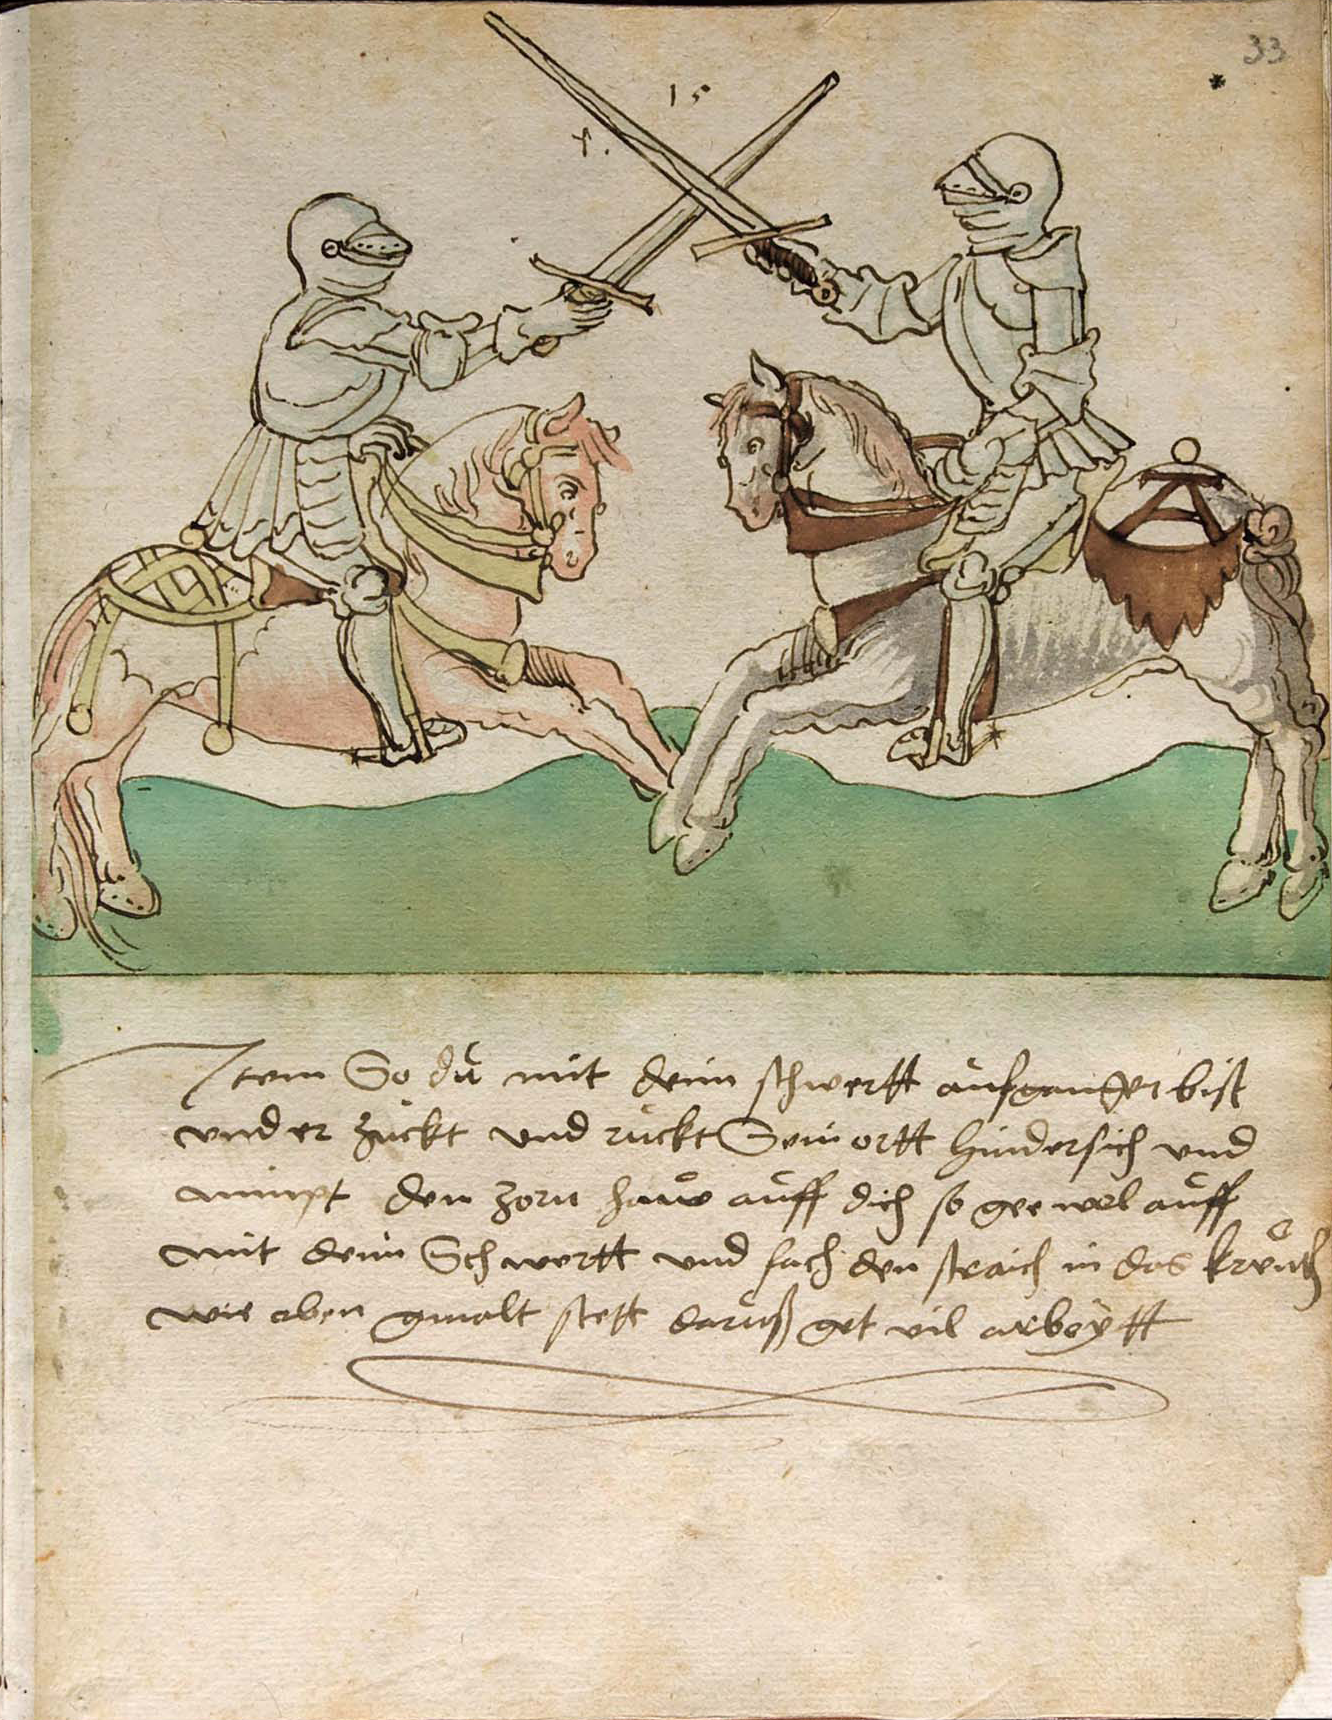 33
15
Item So du mit deim schwertt aufgangen bist
vnd er zuckt vnd ruckt Sein ortt hindersich vnd
nimpt den zorn hauw auff dich so gee wol auff
mit deim Schwertt vnd fach den straich in das kreutz
wie oben gmalt stett daruß get vil arbeytt